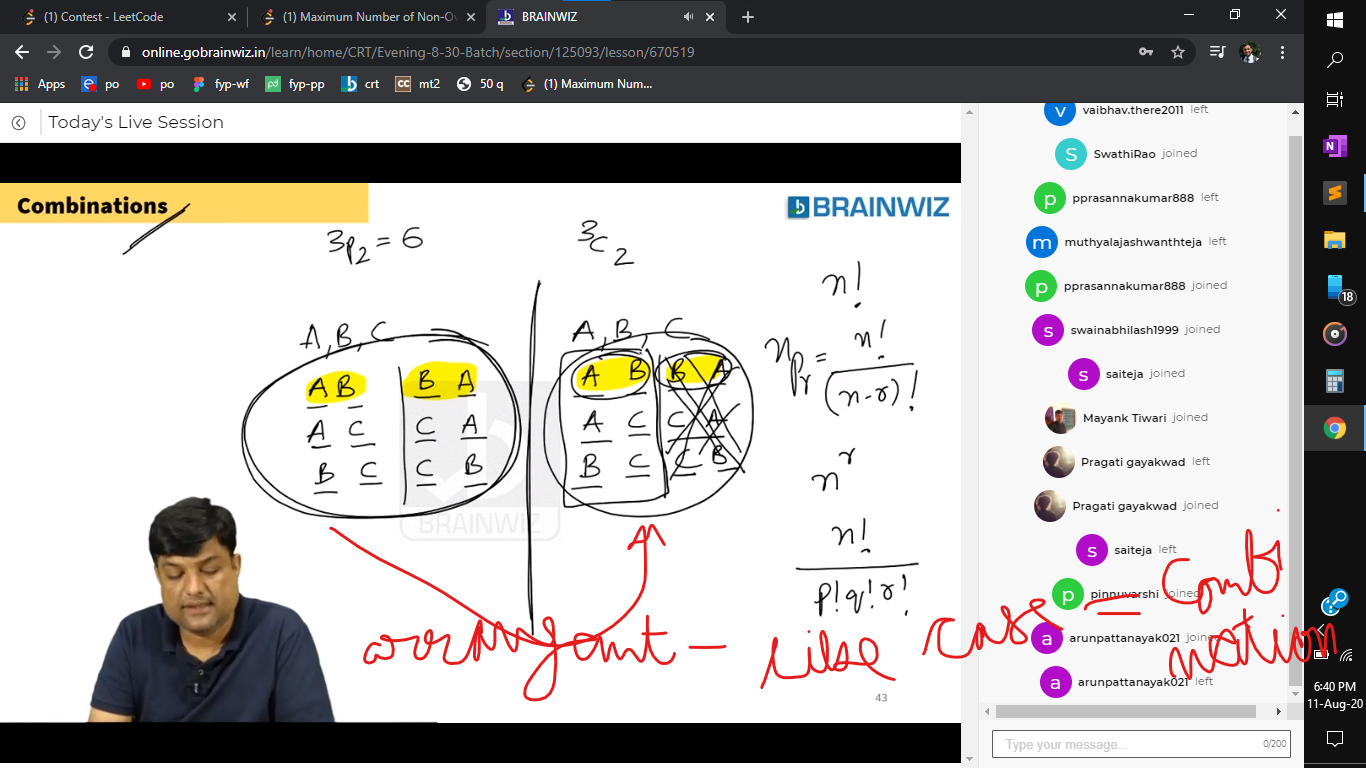 (1) Contest - LeetCode
(1) Maximum Number of Non-Ov
BRAINWIZ
online.gobrainwiz.in/learn/home/CRT/Evening-8-30-Batch/section/125093/lesson/670519
Apps po po fyp-wf fyp-pp crt mt2 50 q (1) Maximum Num...
Today's Live Session
Combinations
BRAINWIZ
3P2 = 6
3C2
A, B, C
A B B A
A C C A
B C C B
A, B, C
A B B A
A C C A
B C C B
n!
nPr = n! / (n-r)!
n^r
n! / p! q! r!
BRAINWIZ
43
case = Combi
nation
vaibhav.there2011 left
S SwathiRao joined
p pprasannakumar888 left
m muthyalajashwanthteja left
p pprasannakumar888 joined
s swainabhilash1999 joined
s saiteja joined
Mayank Tiwari joined
Pragati gayakwad left
Pragati gayakwad joined
s saiteja left
p pinnuvarshi joined
a arunpattanayak021 joined
a arunpattanayak021 left
Type your message...
0/200
18
6:40 PM
11-Aug-20